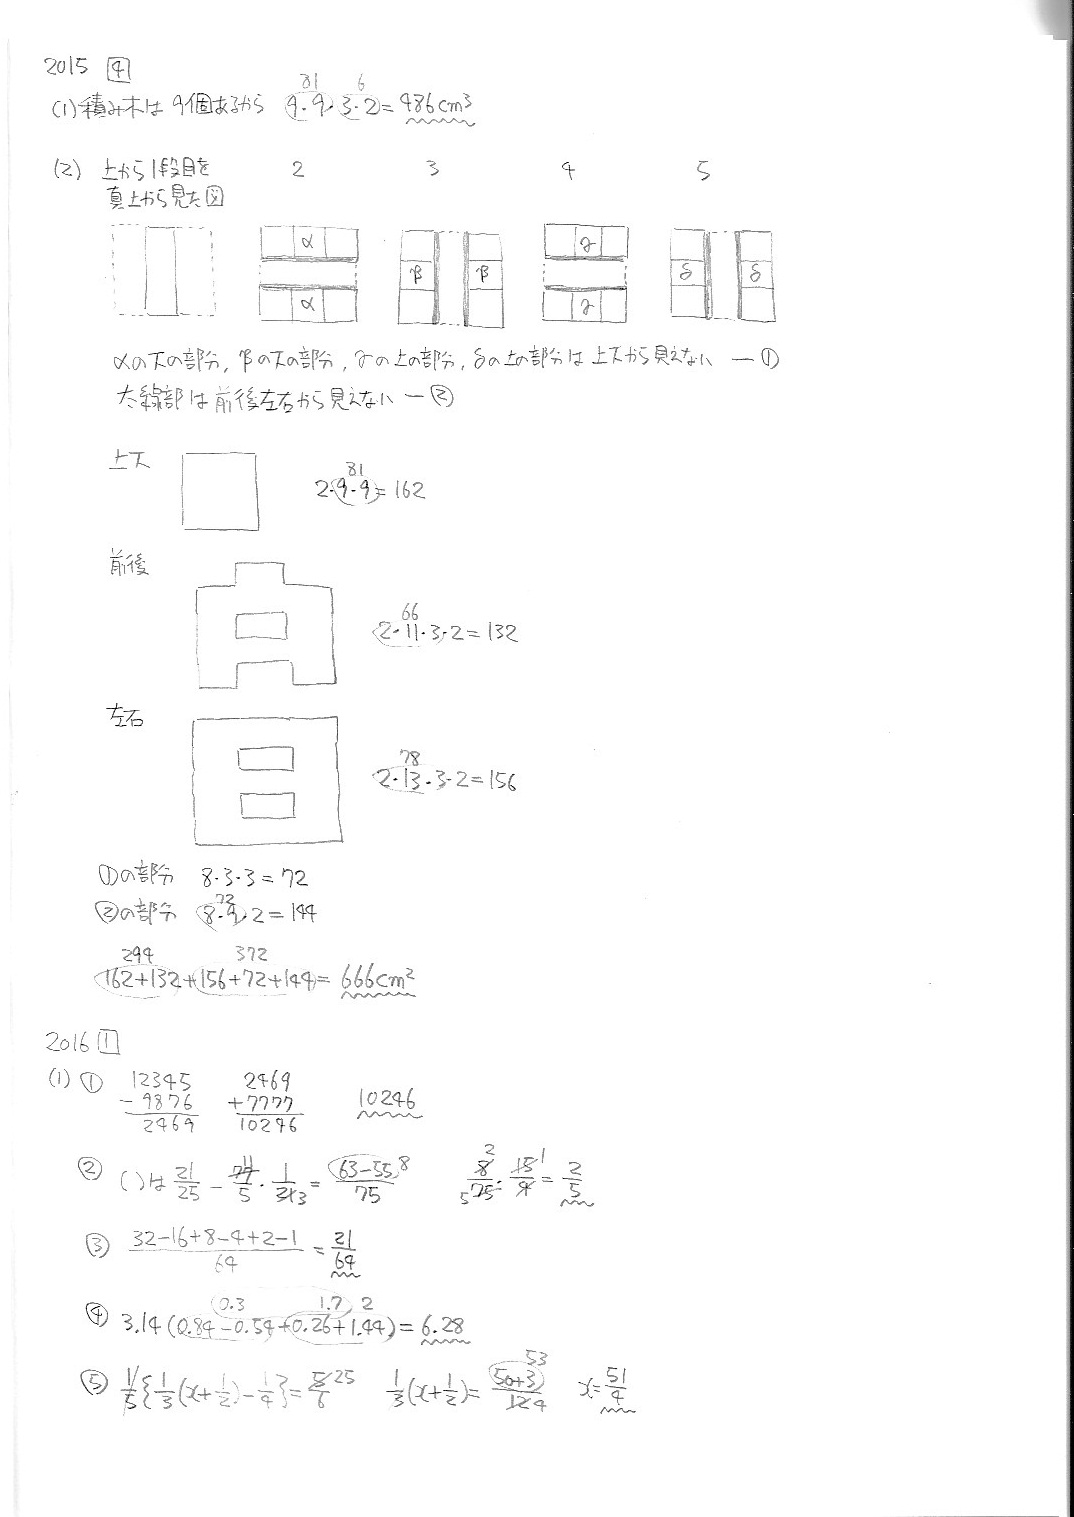 2015 4
(1) 積み木は 9個あるから 9・9・3・2=486cm³
81 6
(2) 上から1段目を 2 3 4 5
真上から見た図
α β β γ δ δ
α γ
αの下の部分, βの下の部分, γの上の部分, δの上の部分は上下から見えない ―①
太線部は前後左右から見えない ―②
上下
81
2・9・9=162
前後
66
2・11・3・2=132
左右
78
2・13・3・2=156
①の部分 8・3・3=72
72
②の部分 8・9・2=144
294 372
162+132+156+72+144= 666cm²
2016 1
(1) ① 12345 2469 10246
-9876 +7777
2469 10246
② ( )は 21/25 - 77/5・1/21 3 = 63-55/75 8 8/75・15/4 = 2/5
③ 32-16+8-4+2-1/64 = 21/64
0.3 1.7 2
④ 3.14(0.84-0.54+0.26+1.44)=6.28
⑤ 1/5{1/3(x+1/2)-1/4}=5/6 25 1/3(x+1/2)= 50+3/12 4 53 x=51/4